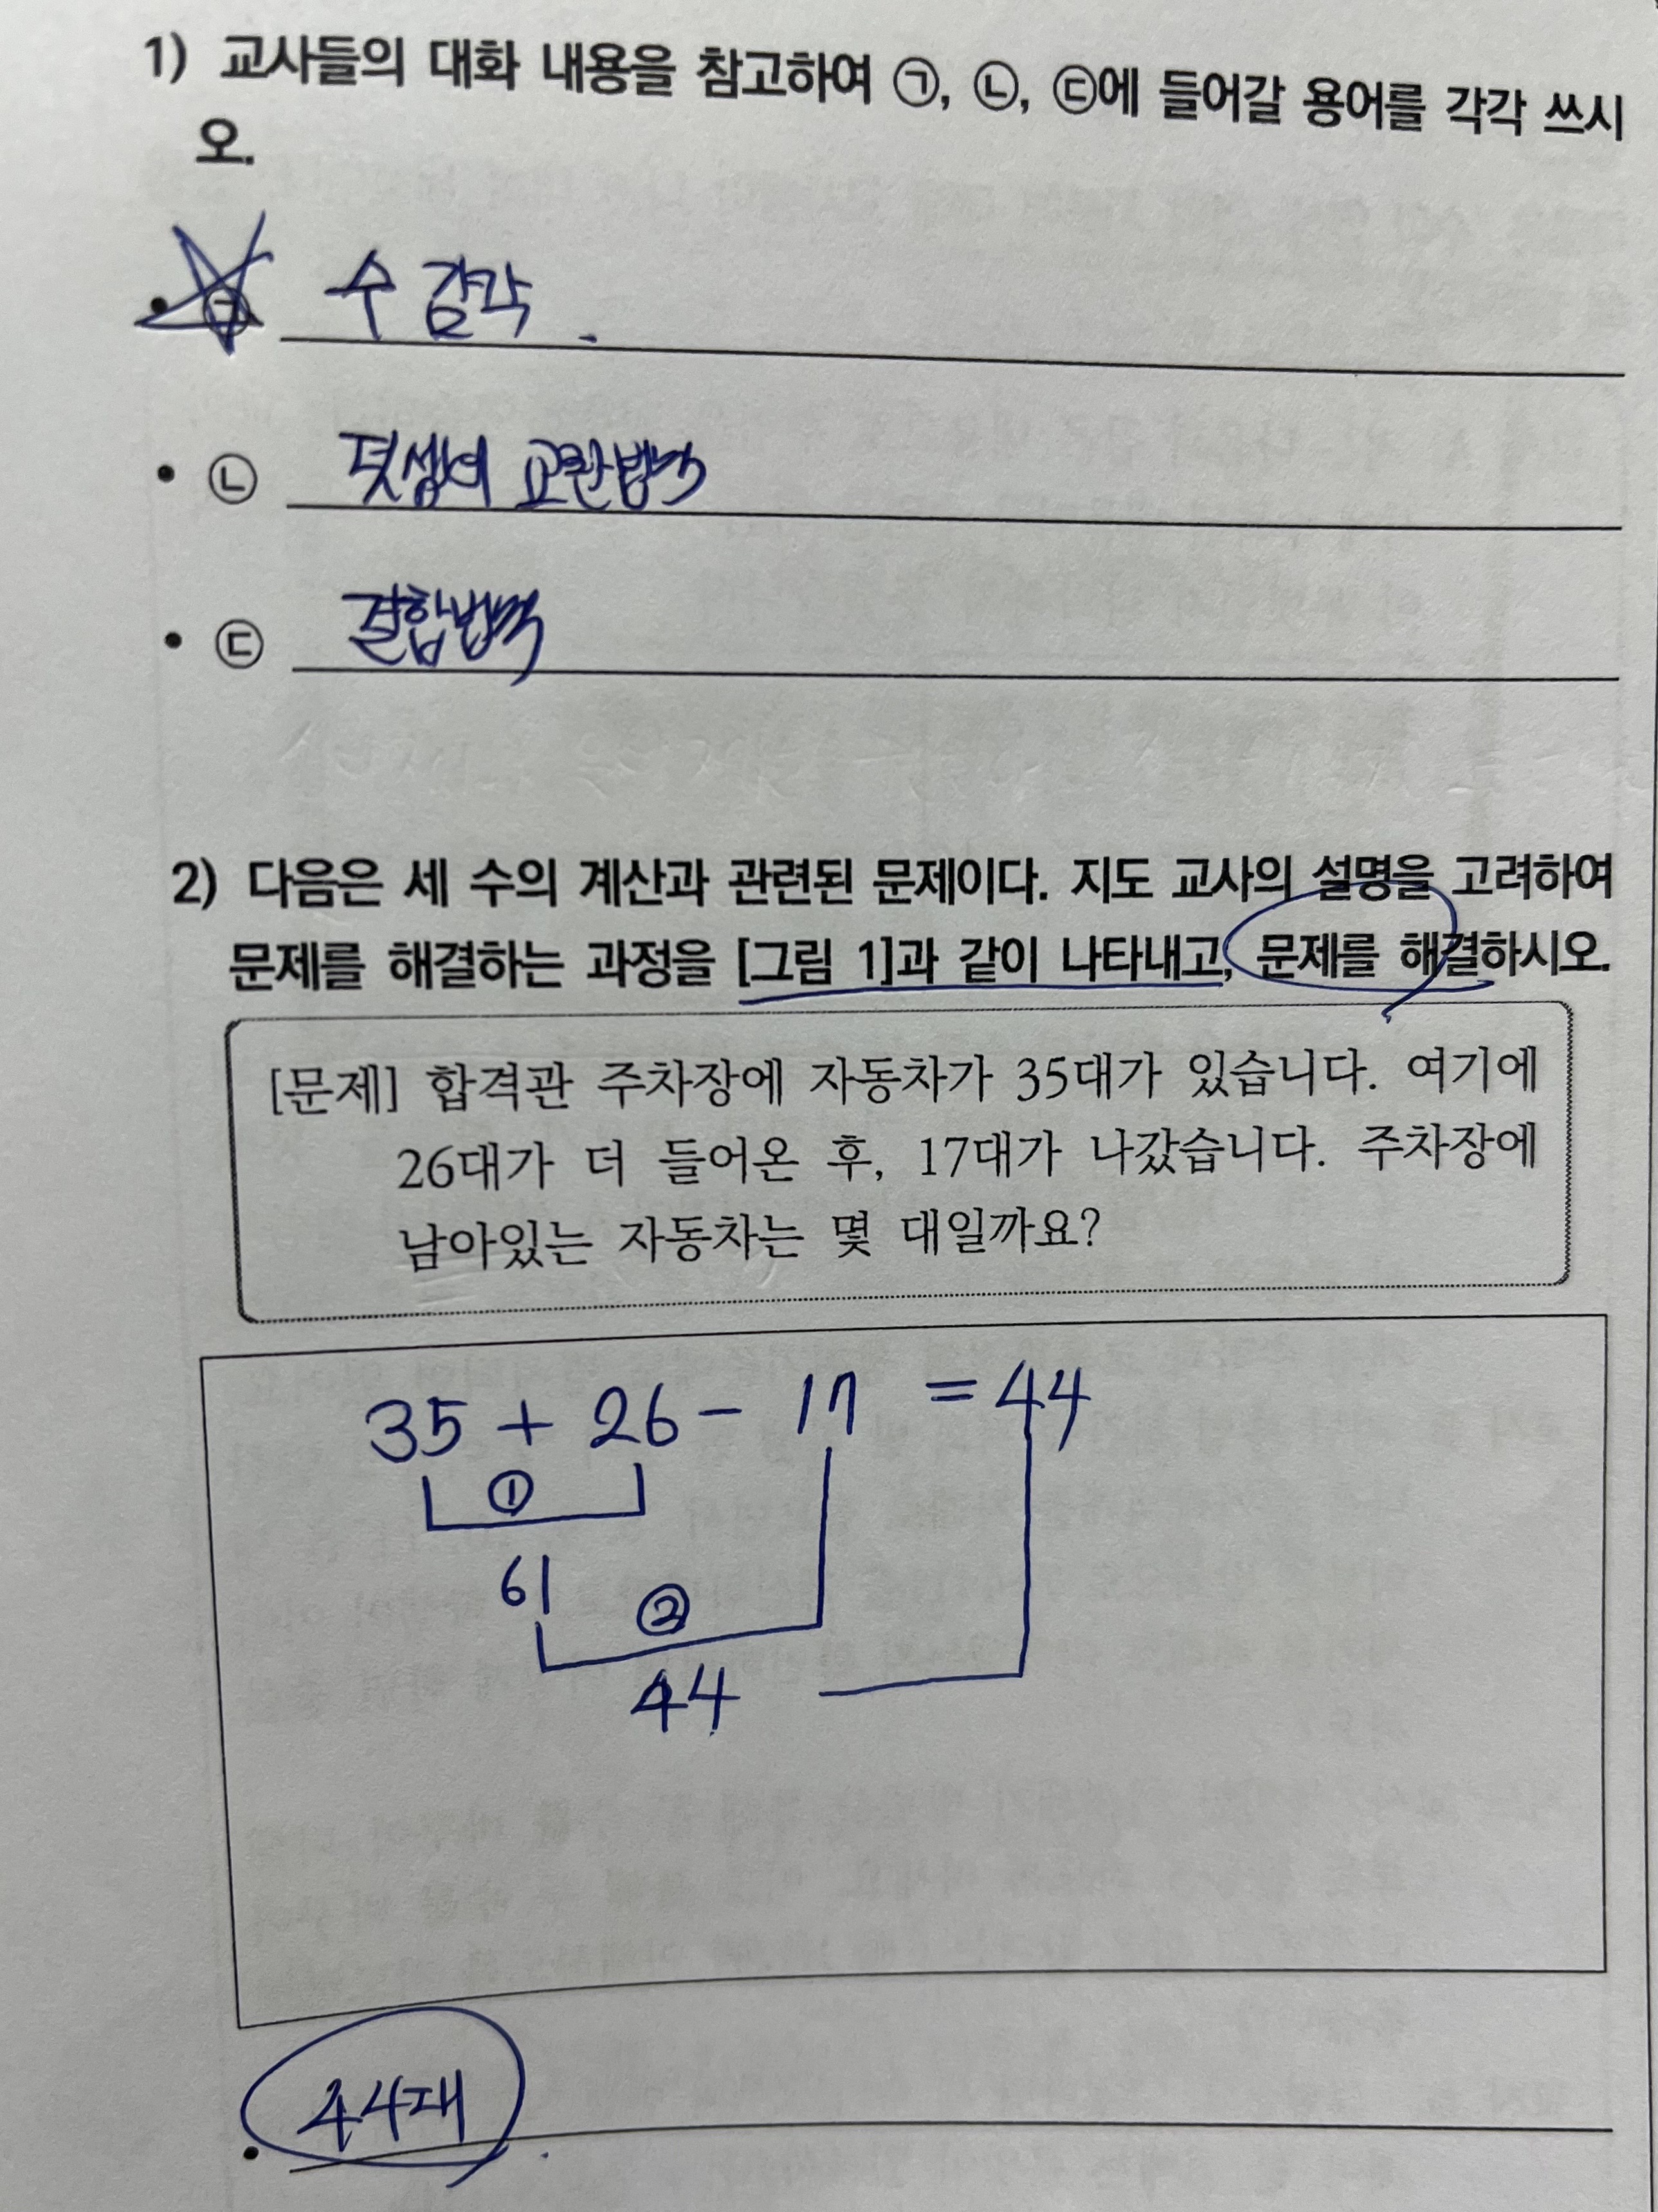 1) 교사들의 대화 내용을 참고하여 ㉠, ㉡, ㉢에 들어갈 용어를 각각 쓰시
오.
• ㉠ 수 감각.
• ㉡ 덧셈의 교환법칙
• ㉢ 결합법칙
2) 다음은 세 수의 계산과 관련된 문제이다. 지도 교사의 설명을 고려하여
문제를 해결하는 과정을 [그림 1]과 같이 나타내고, 문제를 해결하시오.
[문제] 합격관 주차장에 자동차가 35대가 있습니다. 여기에
26대가 더 들어온 후, 17대가 나갔습니다. 주차장에
남아있는 자동차는 몇 대일까요?
35 + 26 - 17 = 44
①
61
②
44
• 44대